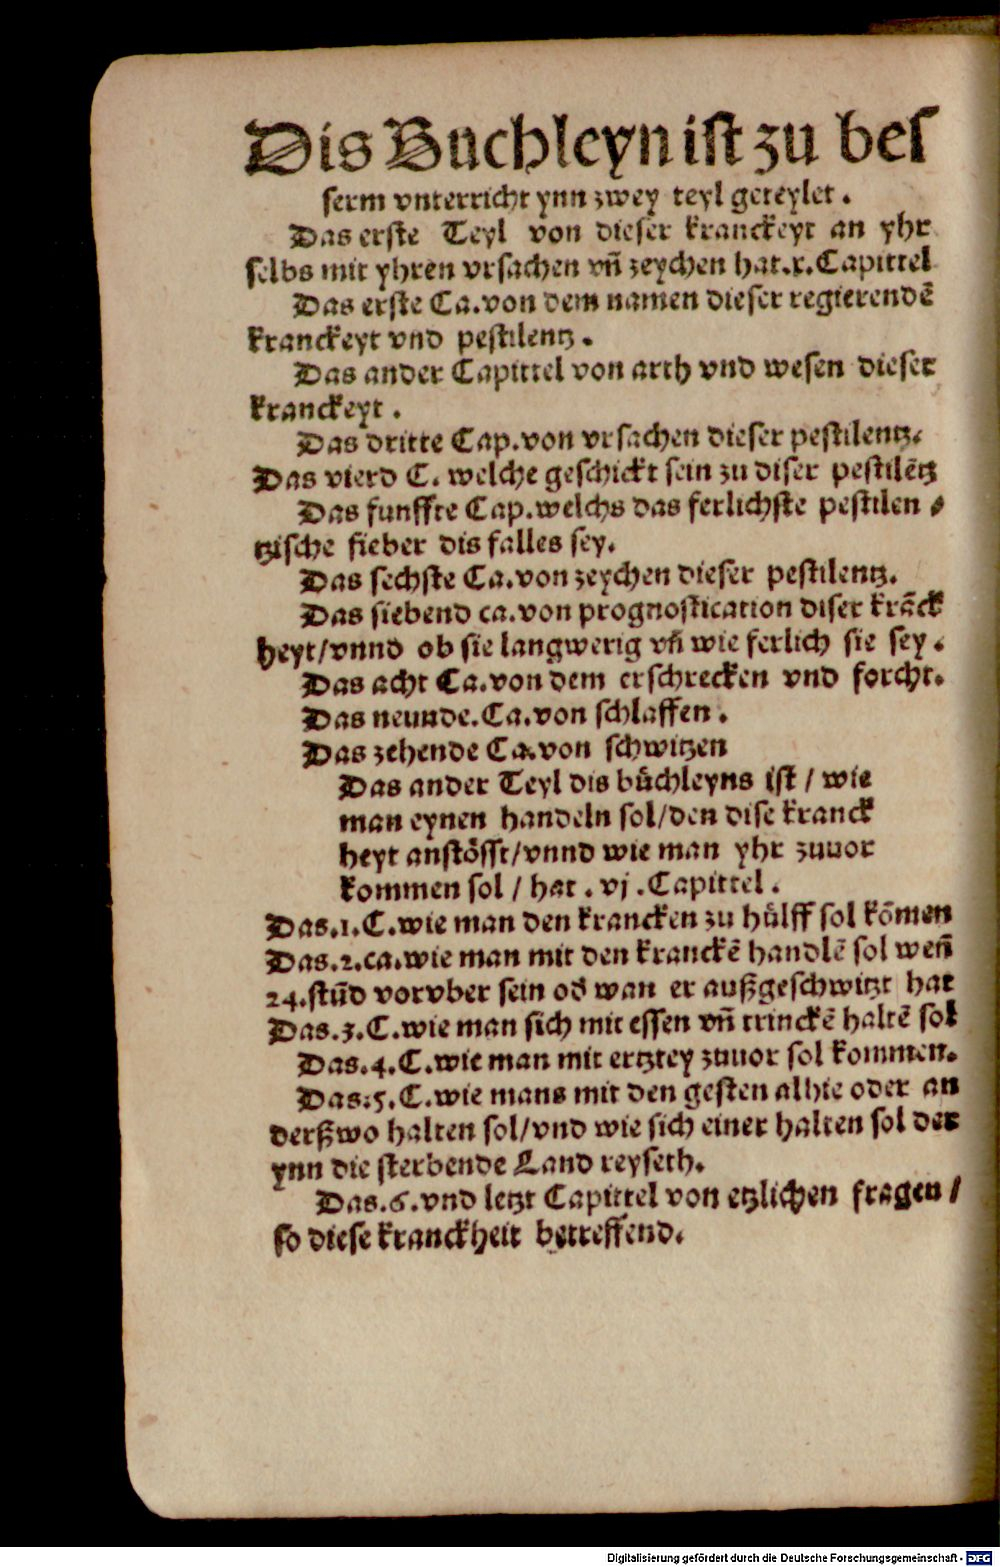 Dis Buchleyn ist zu bes
serm vnterricht ynn zwey teyl geteylet.
Das erste Teyl von dieser kranckeyt an yhr
selbs mit yhren vrsachen vn̄ zeychen hat.x.Capittel
Das erste Ca.von dem namen dieser regierendē
kranckeyt vnd pestilentz.
Das ander Capittel von arth vnd wesen dieser
kranckeyt.
Das dritte Cap.von vrsachen dieser pestilentz.
Das vierd C. welche geschickt sein zu diser pestilētz
Das funffte Cap.welchs das ferlichste pestilen⸗
tzische fieber dis falles sey.
Das sechste Ca.von zeychen dieser pestilentz.
Das siebend ca.von prognostication diser krāck
heyt/vnnd ob sie langwerig vn̄ wie ferlich sie sey.
Das acht Ca.von dem erschrecken vnd forcht.
Das neunde.Ca.von schlaffen.
Das zehende Ca.von schwitzen
Das ander Teyl dis bůchleyns ist / wie
man eynen handeln sol/den dise kranck
heyt anstösst/vnnd wie man yhr zuuor
kommen sol / hat . vj .Capittel.
Das.1.C.wie man den krancken zu hůlff sol kōmen
Das.2.ca.wie man mit den kranckē handlē sol wen̄
24.stūd vorvber sein od̓ wan er außgeschwitzt hat
Das.3.C.wie man sich mit essen vn̄ trinckē haltē sol
Das.4.C.wie man mit ertztey zuuor sol kommen.
Das:5.C.wie mans mit den gesten alhie oder an
derßwo halten sol/vnd wie sich einer halten sol der
ynn die sterbende Land reyseth.
Das.6.vnd letzt Capittel von etzlichen fragen /
so diese kranckheit betreffend.
Digitalisierung gefördert durch die Deutsche Forschungsgemeinschaft - DFG